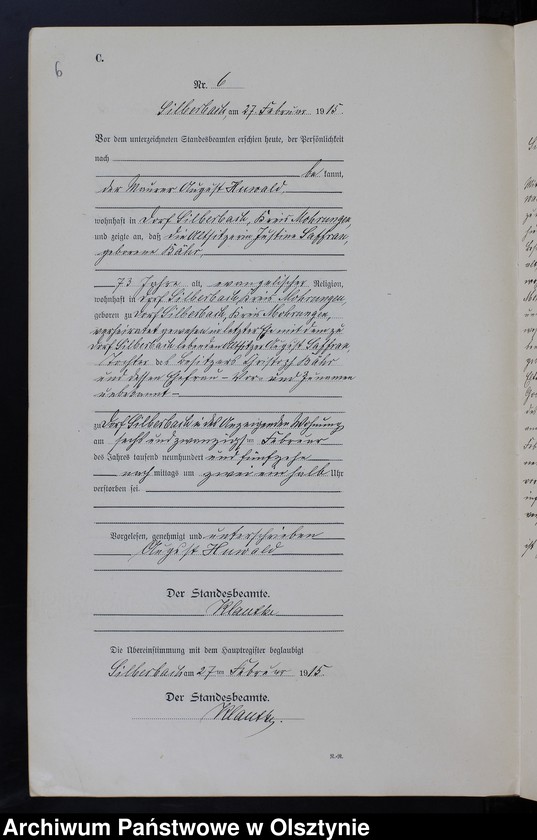 6
C.
Nr. 6
Silberbach, am 27. Februar 1915.
Vor dem unterzeichneten Standesbeamten erschien heute, der Persönlichkeit
nach
be kannt,
der Maurer August Huwald,
wohnhaft in Dorf Silberbach, Kreis Mohrungen,
und zeigte an, daß die Altsitzerin Justine Saffran,
geborene Bähr,
73 Jahre alt, evangelischer Religion,
wohnhaft in Dorf Silberbach, Kreis Mohrungen,
geboren zu Dorf Silberbach, Kreis Mohrungen,
verheiratet gewesen in letzter Ehe mit dem zu
Dorf Silberbach lebenden Altsitzer August Saffran,
Tochter des Besitzers Christoph Bähr
und dessen Ehefrau – Vor- und Zunamen
unbekannt –
zu Dorf Silberbach in des Anzeigenden Wohnung
am sechsundzwanzigsten Februar
des Jahres tausend neunhundert und fünfzehn
nach mittags um zwei ein halb Uhr
verstorben sei.
Vorgelesen, genehmigt und unterschrieben
August Huwald
Der Standesbeamte.
Klautke
Die Übereinstimmung mit dem Hauptregister beglaubigt
Silberbach, am 27ten Februar 1915.
Der Standesbeamte.
Klautke.
R.-R.
Archiwum Państwowe w Olsztynie